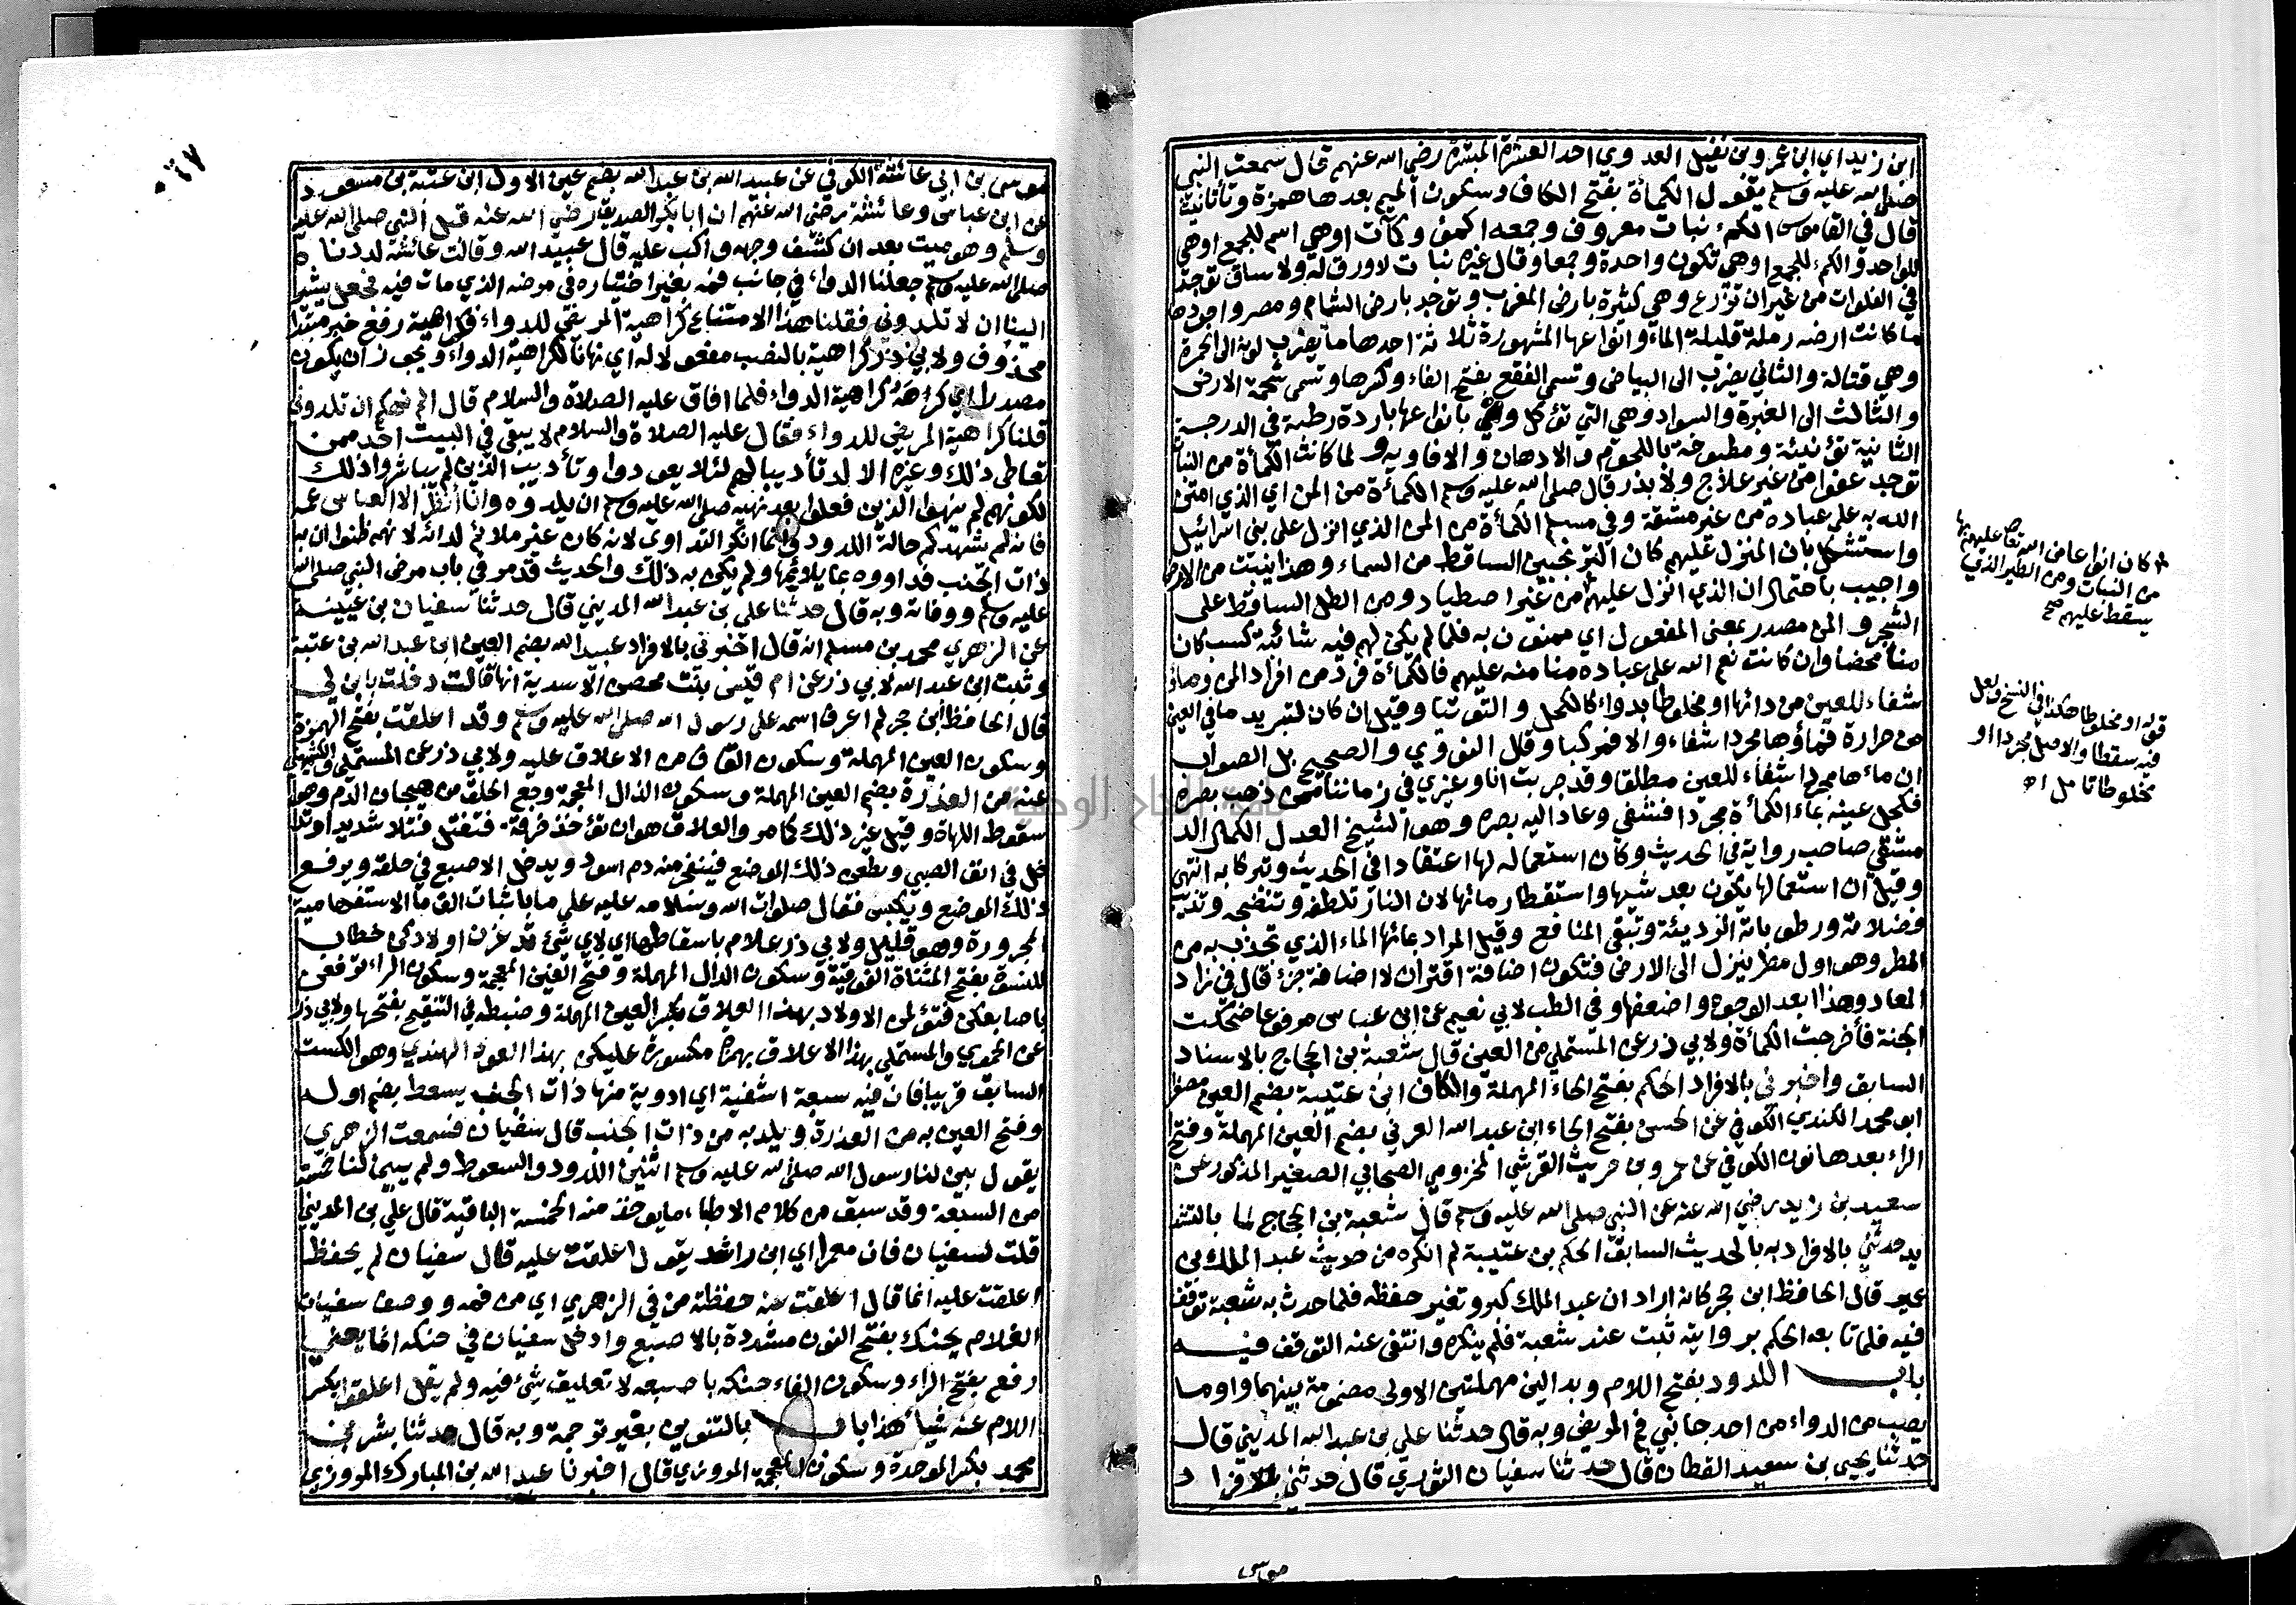 ابن زيد اي ابن عمرو بن نفيل العدوي احد العشرة المبشرة رضي الله عنهم قال سمعت النبي
صلى الله عليه وسلم يقول الكمأة بفتح الكاف وسكون الميم بعدها همزة وتأتانيث
قال في القاموس الكمء نبات معروف وجمعه اكمؤ وكمآت اوهي اسم للجمع اوهي
للواحد والكمء للجمع اوهي تكون واحدة وجمعا وقال غيره نبات لا ورق له ولا ساق توجد
في الفلوات من غير ان تزرع وهي كثيرة بارض المغرب وتوجد بارض الشام ومصر واجودها
ما كانت ارضه رملة قليلة الماء وانواعها المشهورة ثلاثة احدها ما يضرب لونه الى الحمرة
وهي قتالة والثاني يضرب الى البياض وتسمى الفقع بفتح الفاء وكسرها وتسمى شحمة الارض
والثالث الى الغبرة والسواد وهي التي تؤكل وهي بانواعها باردة رطبة في الدرجة
الثانية تؤ نيئة ومطبوخة باللحوم والادهان والافاويه ولما كانت الكمأة من النبات
توجد عفوا من غير علاج ولا بذر قال صلى الله عليه وسلم الكمأة من المن اي الذي امتن
الله به على عباده من غير مشقة وفي مسلم الكمأة من المن الذي انزل على بني اسرائيل
واستشكل بان المنزل عليهم كان الترنجبين الساقط من السماء وهذا ينبت من الارض
واجيب باحتمال ان الذي انزل عليهم من غير اصطياد ومن الطل الساقط على
الشجر والمن مصدر بمعنى المفعول اي ممنون به فلما لم يكن لهم فيه شائبة كسب كان
منا محضا وان كانت نعم الله على عباده منا منه عليهم فالكمأة فرد من افراد المن وماؤها
شفاء للعين من دائها او مخلوطا بدواء كالكحل والتوتيا وقيل ان كان لتبريد ما في العين
من حرارة فماؤها مجردا شفاء والا فمركبا وقال النووي والصحيح بل الصواب
ان ماءها مجردا شفاء للعين مطلقا وقد جربت انا وغيري في زماننا ممن ذهب بصره
فكحل عينه بماء الكمأة مجردا فشفي وعاد اليه بصره وهو الشيخ العدل الكمال الد
مشقي صاحب رواية في الحديث وكان استعماله لها اعتقادا في الحديث وتبركا به انتهى
وقيل ان استعمالها يكون بعد شيها واستقطار مائها لان النار تلطفه وتنضجه وتذيب
فضلاته ورطوباته الرديئة وتبقى المنافع وقيل المراد بمائها الماء الذي تجذب به من
المطر وهو اول مطر ينزل الى الارض فتكون اضافة اقتران لا اضافة جزء قال في زاد
المعاد وهذا ابعد الوجوه واضعفها وفي الطب لابي نعيم عن ابن عباس مرفوعا ضحكت
الجنة فأخرجت الكمأة ولابي ذر عن المستملي من العين قال شعبة بن الحجاج بالاسناد
السابق واخبرني بالافراد الحكم بفتح الحاء المهملة والكاف ابن عتيبة بضم العين مصغرا
ابو محمد الكندي الكوفي عن الحسن بفتح الحاء ابن عبد الله العرني بضم العين المهملة وفتح
الراء بعدها نون الكوفي عن عمرو بن حريث القرشي المخزومي الصحابي الصغير المذكور عن
سعيد بن زيد رضي الله عنه عن النبي صلى الله عليه وسلم قال شعبة بن الحجاج لما بالتشد
يد حدثني بالافراد به بالحديث السابق الحكم بن عتيبة لم انكره من حديث عبد الملك بن
عمير قال الحافظ ابن حجر كانه اراد ان عبد الملك كبر وتغير حفظه فلما حدث به شعبة توقف
فيه فلما تابعه الحكم بروايته ثبت عند شعبة فلم ينكره وانتفى عنه التوقف فيه
باب اللدود بفتح اللام وبدالين مهملتين الاولى مضمومة بينهما واو ما
يصب من الدواء من احد جانبي فم المريض وبه قال حدثنا علي بن عبد الله المديني قال
حدثنا يحيى بن سعيد القطان قال حدثنا سفيان الثوري قال حدثني بالافراد
موسى
كان انواعا من الله تعالى عليهم بها
من النبات ومن الطير الذي
يسقط عليهم صح
قوله او مخلوطا هكذا في النسخ ولعل
فيه سقطا والاصل مجردا او
مخلوطا تأمل اه
موسى بن ابي عائشة الكوفي عن عبيد الله بن عبد الله بضم عين الاول ابن عتبة بن مسعود
عن ابن عباس وعائشة رضي الله عنهم ان ابا بكر الصديق رضي الله عنه قبل النبي صلى الله عليه
وسلم وهو ميت بعد ان كشف وجهه واكب عليه قال عبيد الله وقالت عائشة لددناه
صلى الله عليه وسلم جعلنا الدواء في جانب فمه بغير اختياره في مرضه الذي مات فيه فجعل يشير
الينا ان لا تلدوني فقلنا هذا الامتناع كراهية المريض للدواء فكراهية رفع خبر مبتدا
محذوف ولابي ذر كراهية بالنصب مفعولا له اي نهانا لكراهية الدواء ويجوز ان يكون
مصدرا اي كرهه كراهية الدواء فلما افاق عليه الصلاة والسلام قال الم انهكم ان تلدوني
قلنا كراهية المريض للدواء فقال عليه الصلاة والسلام لا يبقى في البيت احد ممن
تعاطى ذلك وغيره الا لد تأديبا لهم لئلا يعودوا وتأديب الذين لم يباشروا ذلك
لكونهم لم ينهوا الذين فعلوا بعد نهيه صلى الله عليه وسلم ان يلدوه وانا انظر الا العباس عمه
فانه لم يشهدكم حالة اللدود وانما انكر التداوي لانه كان غير ملائم لدائه لانهم ظنوا ان به
ذات الجنب فداووه بما يلائمها ولم يكن به ذلك والحديث قد مر في باب مرض النبي صلى الله
عليه وسلم ووفاته وبه قال حدثنا علي بن عبد الله المديني قال حدثنا سفيان بن عيينة
عن الزهري محمد بن مسلم انه قال اخبرني بالافراد عبيد الله بضم العين ابن عبد الله بن عتبة
وثبت ابن عبد الله لابي ذر عن ام قيس بنت محصن الاسدية انها قالت دخلت بابن لي
قال الحافظ ابن حجر لم اعرف اسمه على رسول الله صلى الله عليه وسلم وقد اعلقت بفتح الهمزة
وسكون العين المهملة وسكون القاف من الاعلاق عليه ولابي ذر عن المستملي والكشميهني
عنه من العذرة بضم العين المهملة وسكون الذال المعجمة وجع الحلق من هيجان الدم وهو
سقوط اللهاة وقيل غير ذلك كما مر والعلاق هو ان تؤخذ خرقة فتفتل فتلا شديدا وتد
خل في انف الصبي ويطعن ذلك الموضع فينفجر منه دم اسود ويدخل الاصبع في حلقه ويرفع
ذلك الموضع ويكبس فقال صلوات الله وسلامه عليه على ما باثبات الف ما الاستفهامية
المجرورة وهو قليل ولابي ذر علام باسقاطها اي لاي شئ تدغرن اولادكن خطاب
للنسوة بفتح المثناة الفوقية وسكون الدال المهملة وفتح الغين المعجمة وسكون الراء ترفعن
باصابعكن فتؤلمن الاولاد بهذا العلاق بكسر العين المهملة وضبطه في التنقيح بفتحها ولابي ذر
عن الحموي والمستملي بهذا الاعلاق بهمزة مكسورة عليكن بهذا العود الهندي وهو الكست
السابق قريبا فان فيه سبعة اشفية اي ادوية منها ذات الجنب يسعط بضم اوله
وفتح العين به من العذرة ويلد به من ذات الجنب قال سفيان فسمعت الزهري
يقول بين لنا رسول الله صلى الله عليه وسلم اثنين اللدود والسعوط ولم يبين لنا خمسة
من السبعة وقد سبق من كلام الاطباء ما يؤخذ منه الخمسة الباقية قال علي بن المديني
قلت لسفيان فان معمرا اي ابن راشد يقول اعلقت عليه قال سفيان لم يحفظ
اعلقت عليه انما قال اعلقت عنه حفظته من في الزهري اي من فمه ووصف سفيان
الغلام يحنك بفتح النون مشددة بالاصبع وادخل سفيان في حنكه انما يعني
رفع بفتح الراء وسكون الفاء حنكه باصبعه لا تعليق شئ فيه ولم يقل اعلقوا بكسر
اللام عنه شيأ هذا باب بالتنوين بغير ترجمة وبه قال حدثنا بشر بن
محمد بكسر الموحدة وسكون المعجمة المروزي قال اخبرنا عبد الله بن المبارك المروزي